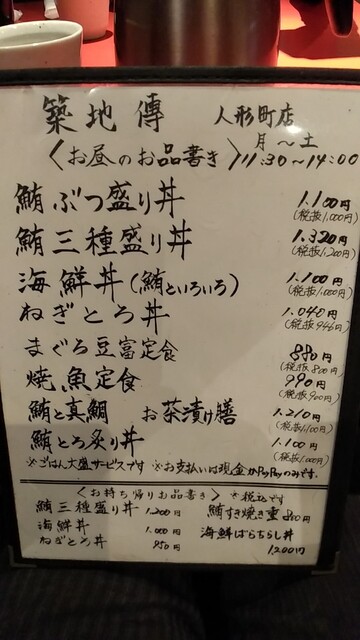 築地傳 人形町店
月〜土
〈お昼のお品書き〉11:30〜14:00
鮪ぶつ盛り丼 1.100円
(税抜1.000円)
鮪三種盛り丼 1.320円
(税抜1.200円)
海鮮丼(鮪といろいろ) 1.100円
(税抜1.000円)
ねぎとろ丼 1.040円
(税抜946円)
まぐろ豆富定食 880円
(税抜800円)
焼魚定食 990円
(税抜900円)
鮪と真鯛 お茶漬け膳 1.210円
(税抜1.100円)
鮪とろ炙り丼 1.100円
(税抜1.000円)
※ごはん大盛サービスです ※お支払いは現金かPayPayのみです.
〈お持ち帰りお品書き〉 ※税込です
鮪三種盛り丼 1.200円 鮪すき焼き重 800円
海鮮丼 1.000円 海鮮ばらちらし丼
ねぎとろ丼 950円 1200円